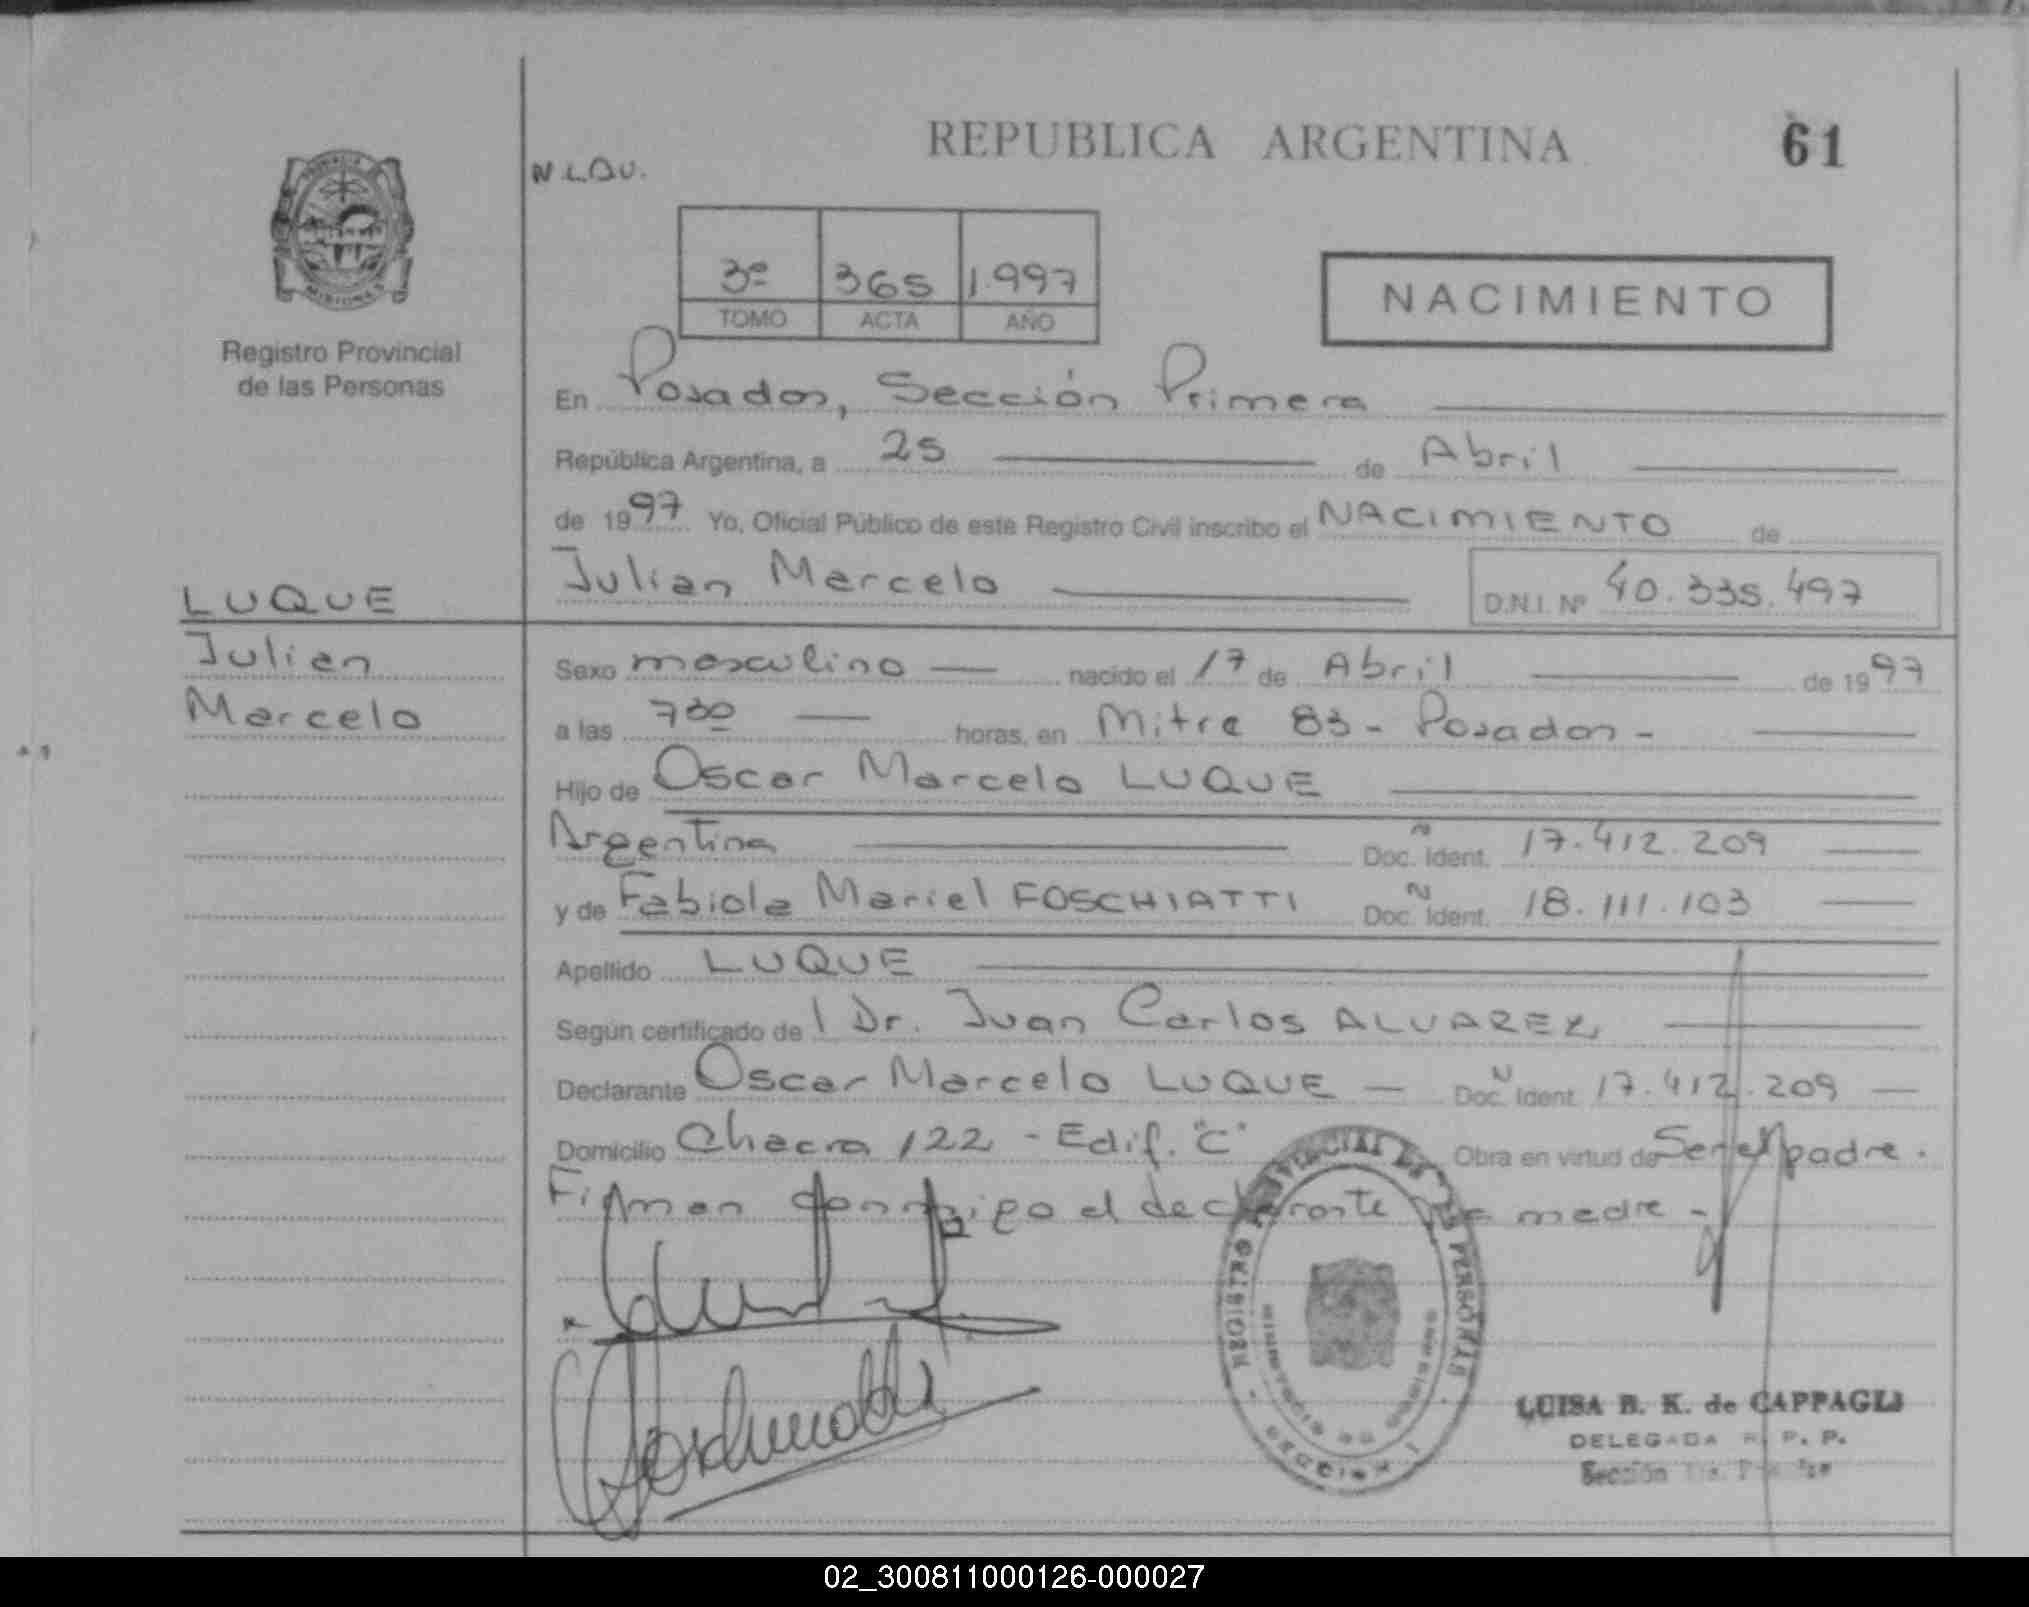 REPUBLICA ARGENTINA
61
N.L.Q.U.
3º 365 1.997
TOMO ACTA AÑO
NACIMIENTO
MISIONES
Registro Provincial
de las Personas
En Posadas, Sección Primera
República Argentina, a 25 de Abril
de 1997 Yo, Oficial Público de este Registro Civil inscribo el NACIMIENTO de
Julian Marcelo
D.N.I. Nº 40.335.497
LUQUE
Julian
Marcelo
Sexo masculino nacido el 17 de Abril de 1997
a las 7³⁰ horas, en Mitre 83 - Posadas -
Hijo de Oscar Marcelo LUQUE
Argentina Doc. Ident. 17.412.209
y de Fabiola Mariel FOSCHIATTI Doc. Ident. 18.111.103
Apellido LUQUE
Según certificado de l Dr. Juan Carlos ALVAREZ
Declarante Oscar Marcelo LUQUE - Doc. Ident. 17.412.209
Domicilio Chacra 122 - Edif. "C" Obra en virtud de Ser el padre.
Firman conmigo el declarante y la madre -
REGISTRO PROVINCIAL DE LAS PERSONAS
LUISA B. K. de CAPPAGLI
DELEGADA R. P. P.
Sección
02_300811000126-000027